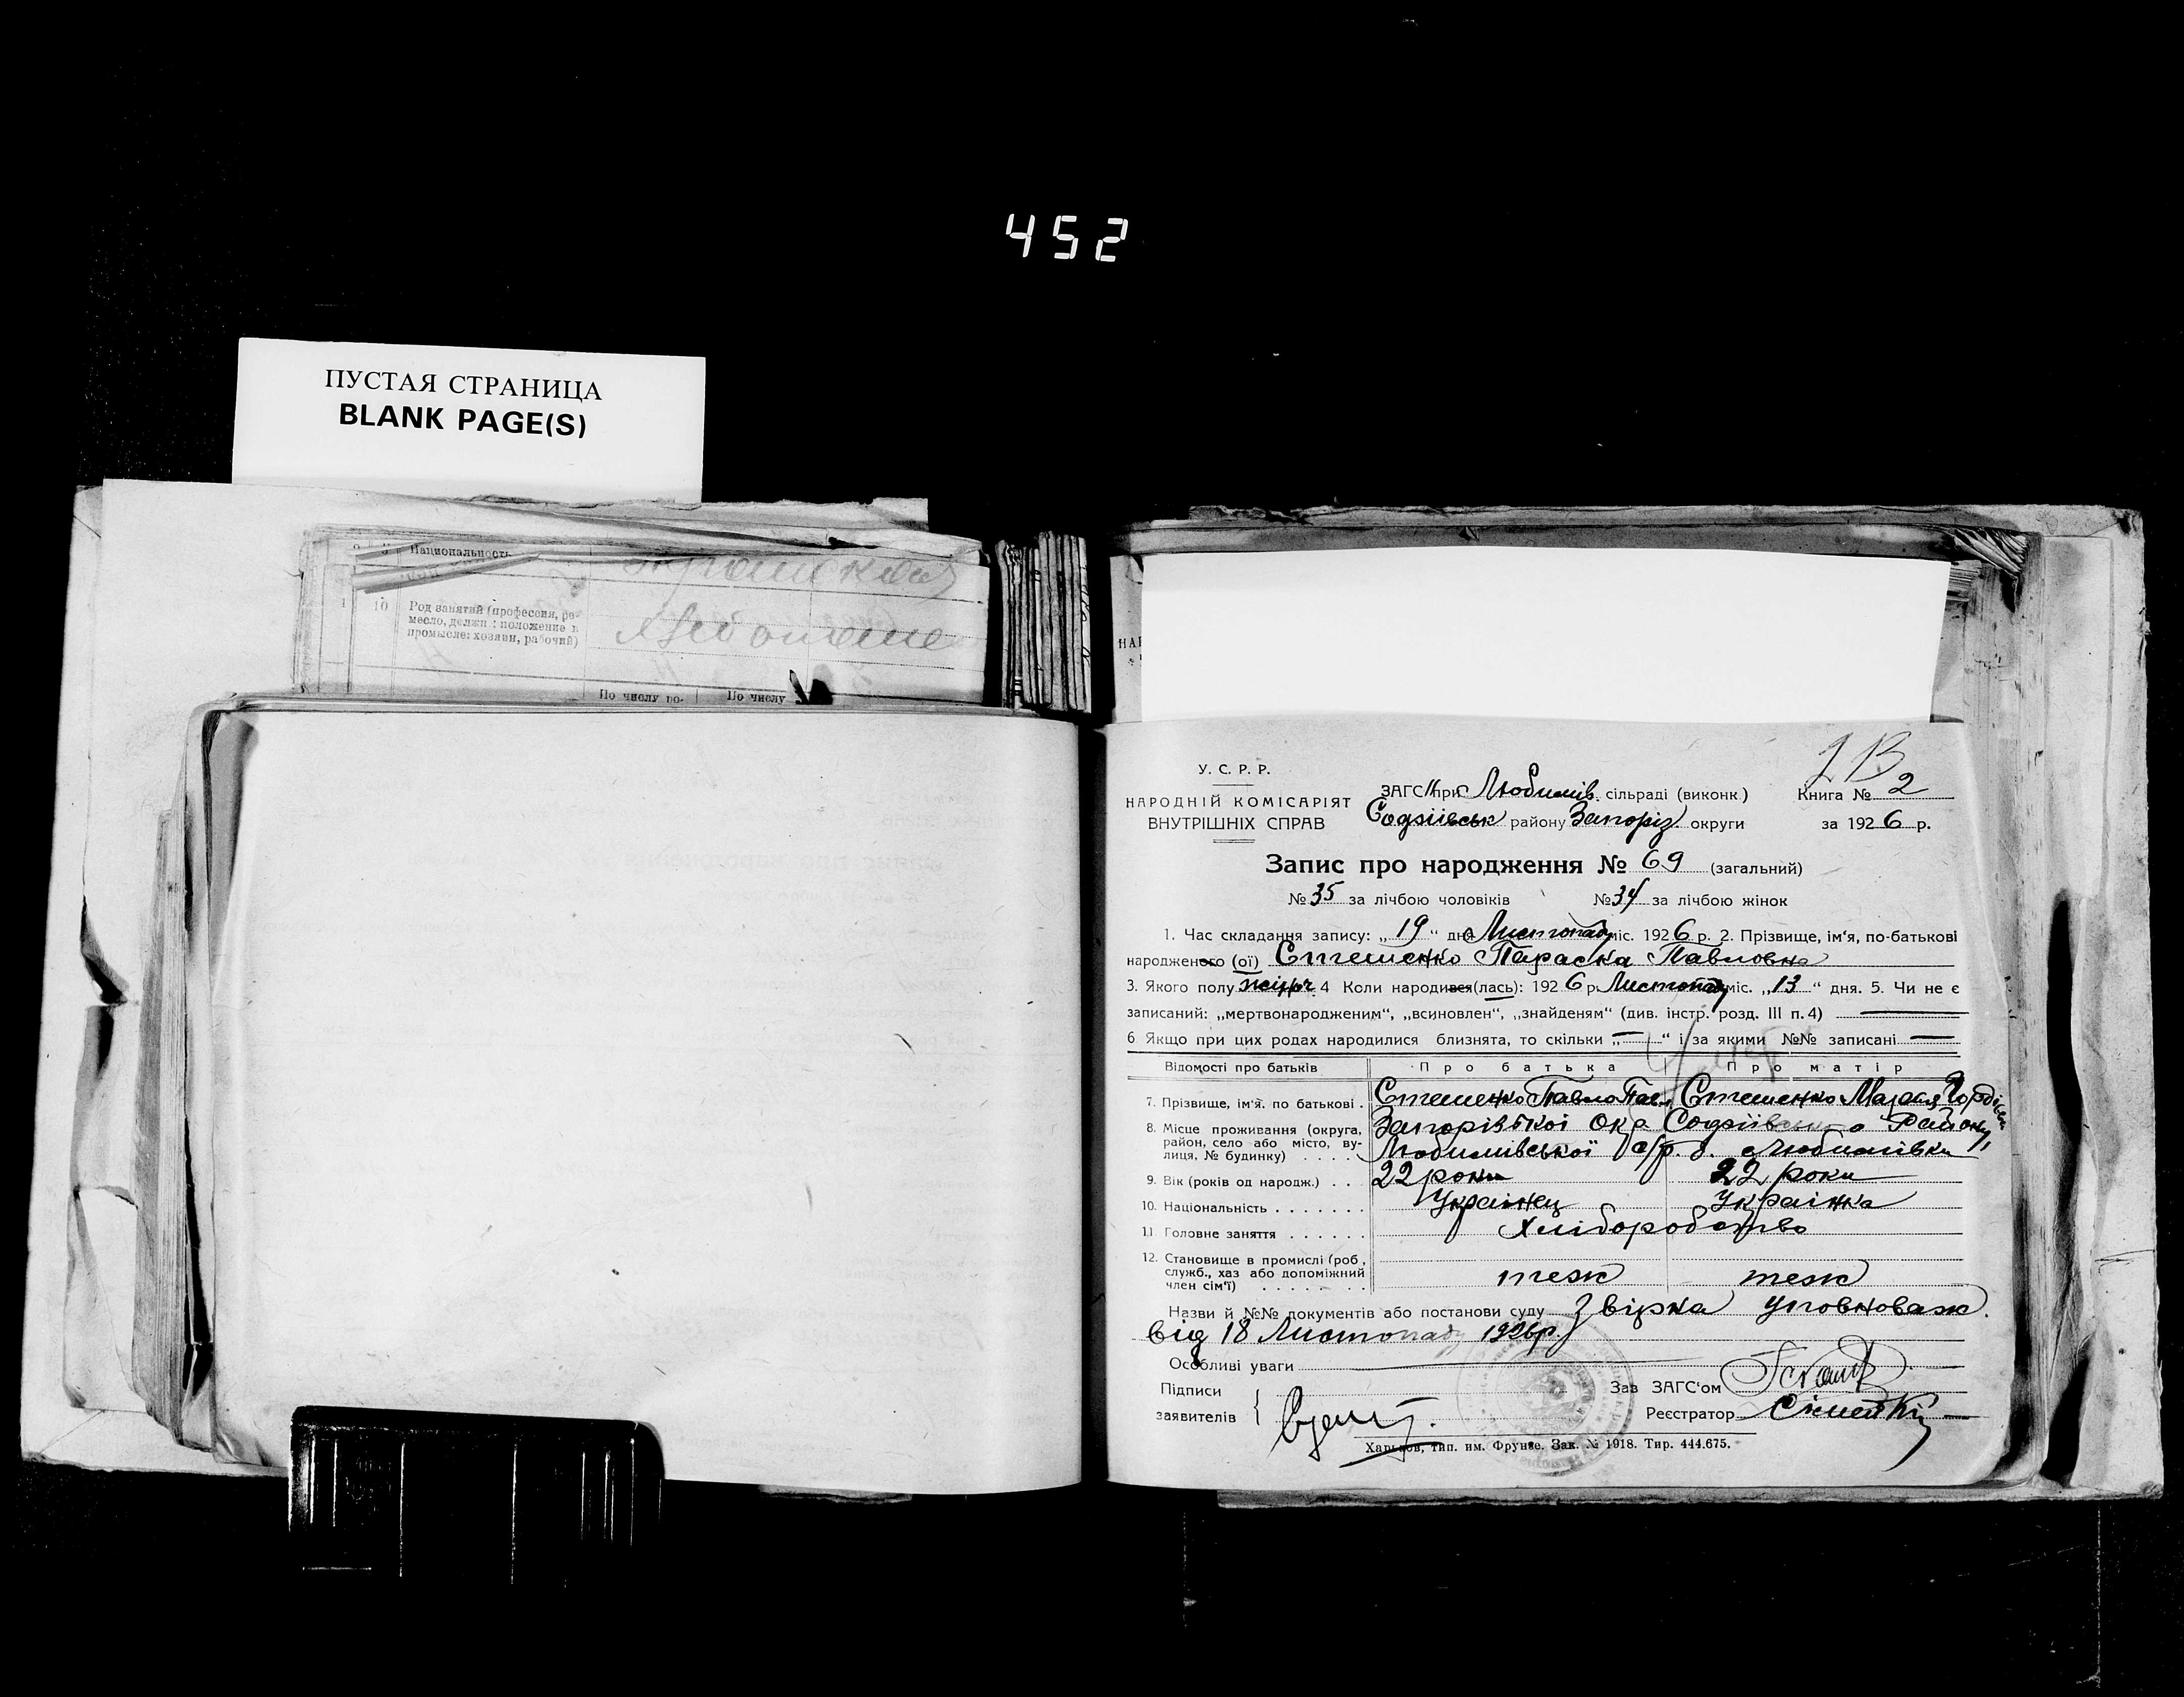 452
ПУСТАЯ СТРАНИЦА
BLANK PAGE(S)
Национальность
1 10 Род занятий (профессия, ре-
месло, должн : положение в
промысле: хозяин, рабочий)
По числу ро- По числу
НАР
2
У. С. Р. Р.
НАРОДНІЙ КОМІСАРІЯТ
ВНУТРІШНІХ СПРАВ
ЗАГС при Любимів. сільраді (виконк.) Книга № 2
Софіівськ району Запоріз. округи за 1926 р.
Запис про народження № 69 (загальний)
№ 35 за лічбою чоловіків № 34 за лічбою жінок
1. Час складання запису: „19“ дня Листопаду міс. 1926 р. 2. Прізвище, ім‘я, по-батькові
народженого (ої) Стешенко Параска Павловна
3. Якого полу жіноч. 4 Коли народився(лась): 1926 р. Листопаду міс. „13“ дня. 5. Чи не є
записаний: „мертвонародженим“, „всиновлен“, „знайденям“ (див. інстр. розд. III п. 4) —
6 Якщо при цих родах народилися близнята, то скільки „—“ і за якими №№ записані —
Відомості про батьків Про батька Про матір
7. Прізвище, ім‘я. по батькові . Стешенко Павло Пав. Стешенко Гордіев
8. Місце проживання (округа, Запорізької Окр Софіівського Району
район, село або місто, ву-
лиця, № будинку) . . . . Любимівської с/р. с. Любимівки
9. Вік (років од народж.) . . 22 роки 22 роки
10. Національність . . . . . . . Українец Українка
11. Головне заняття . . . . . . Хліборобство
12. Становище в промислі (роб,
служб., хаз або допоміжний
член сім‘ї) . . . . . . . . теж теж
Назви й №№ документів або постанови суду Звірка уповноваж.
від 18 Листопаду 1926р.
Особливі уваги
Підписи Зав ЗАГС‘ом
заявителів { Реєстратор
Харьков, тип. им. Фрунзе. Зак. № 1918. Тир. 444.675.